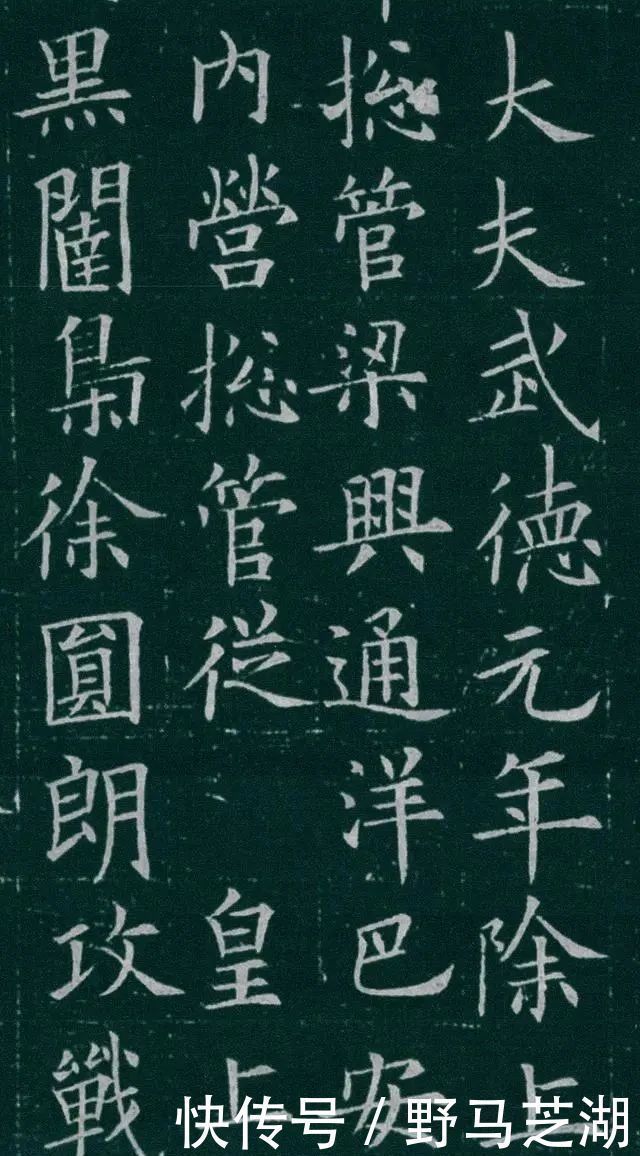 大夫武德元年除上
揔管梁興通洋巴安
内營揔管從 皇上
黑闥梟徐圓朗攻戰
快传号 / 野马芝湖